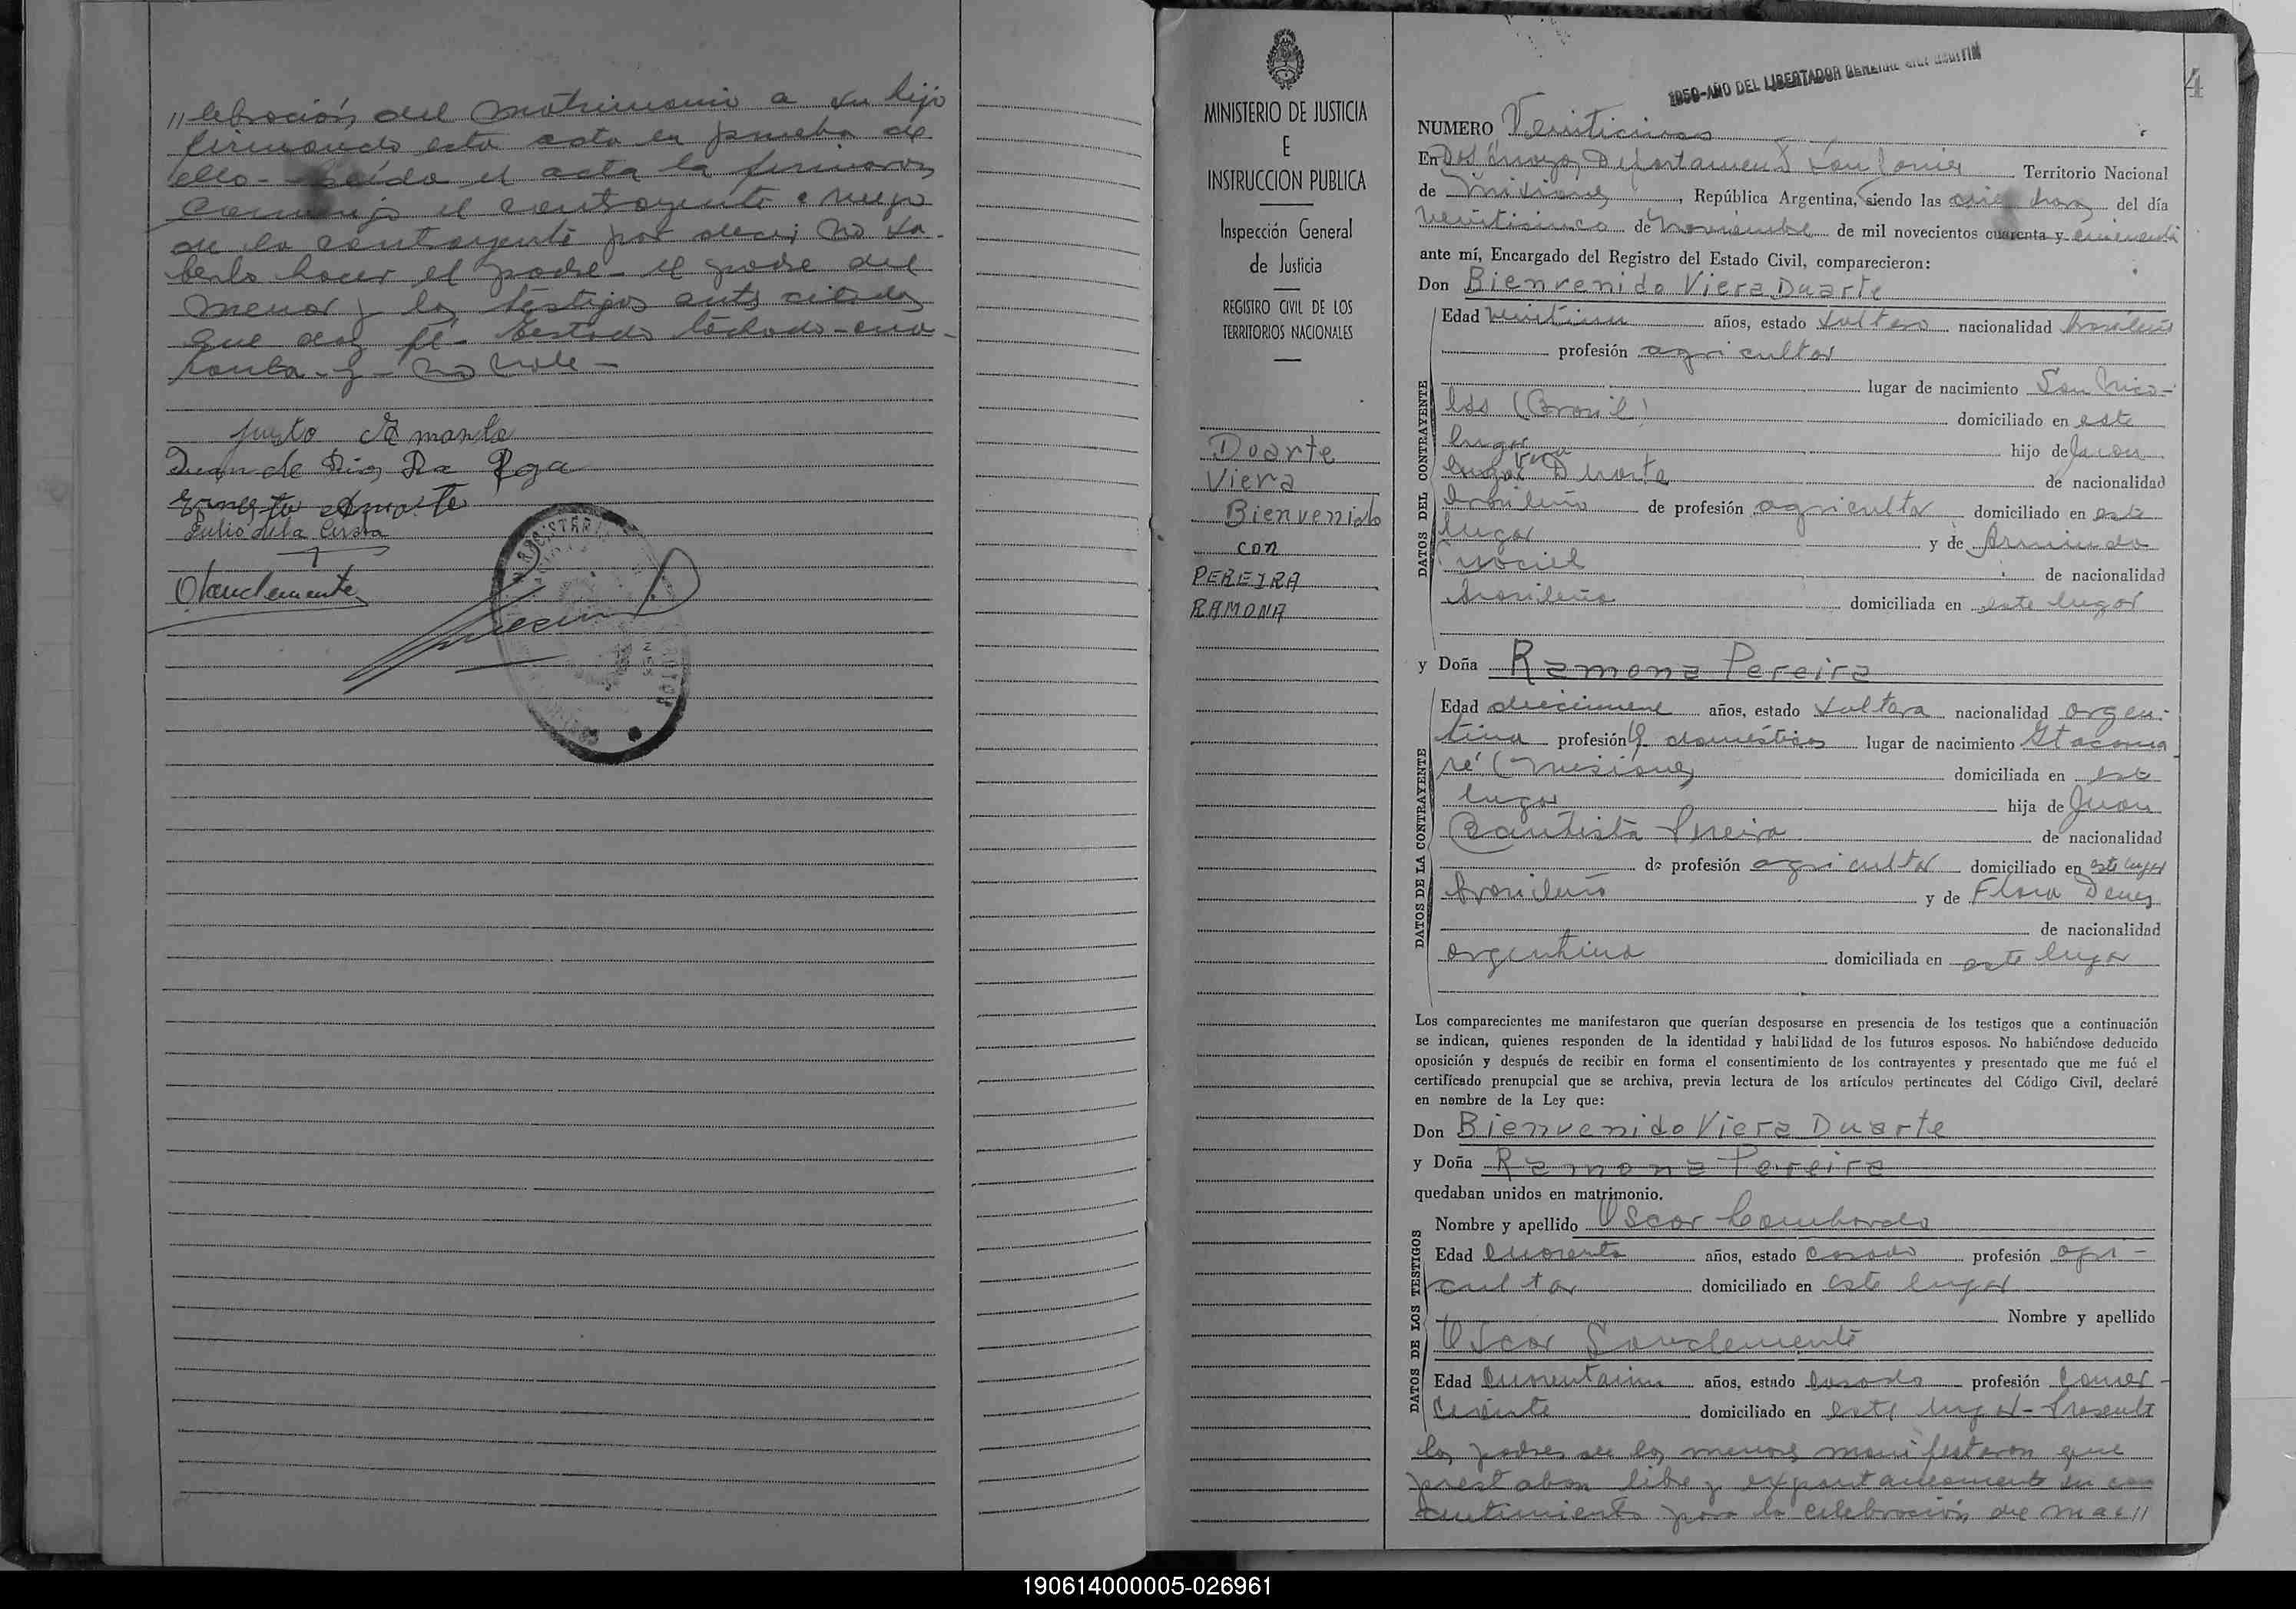 //lebración, del matrimonio a su hijo
firmando esta acta en prueba de
ello.- Leída el acta la firmaron
conmigo el contrayente a ruego
de la contrayente por decir no sa-
berlo hacer el padre - el padre del
menor y los testigos antes citados
que doy fé - Testado tachado - cua-
renta - y - no vale -
Justo
Juan de Dios Da Roza
Ernesto Duarte
Julio de la Costa
OSanclemente
MINISTERIO DE JUSTICIA
E
INSTRUCCION PUBLICA
Inspección General
de Justicia
REGISTRO CIVIL DE LOS
TERRITORIOS NACIONALES
Duarte
Viera
Bienvenido
con
PEREIRA
RAMONA
1950-AÑO DEL LIBERTADOR GENERAL SAN MARTIN
4
NUMERO Veinticinco
En Dos Arroyos, Departamento San Javier Territorio Nacional
de Misiones, República Argentina, siendo las once horas del día
veinticinco de Noviembre de mil novecientos cuarenta y cincuenta
ante mí, Encargado del Registro del Estado Civil, comparecieron:
Don Bienvenido Viera Duarte
Edad años, estado soltero nacionalidad brasileño
profesión agricultor
lugar de nacimiento San Nico-
lás (Brasil) domiciliado en este
lugar hijo de Juan
Viera Duarte de nacionalidad
brasileño de profesión agricultor domiciliado en este
lugar y de Arminda
Maciel de nacionalidad
brasileña domiciliada en este lugar
y Doña Ramona Pereira
Edad diecinueve años, estado soltera nacionalidad argen-
tina profesión Q. domésticos lugar de nacimiento Itacarua-
ré (Misiones) domiciliada en este
lugar hija de Juan
Bautista Pereira de nacionalidad
de profesión agricultor domiciliado en este lugar
brasileño y de Flora Denes
de nacionalidad
argentina domiciliada en este lugar
Los comparecientes me manifestaron que querían desposarse en presencia de los testigos que a continuación
se indican, quienes responden de la identidad y habilidad de los futuros esposos. No habiéndose deducido
oposición y después de recibir en forma el consentimiento de los contrayentes y presentado que me fué el
certificado prenupcial que se archiva, previa lectura de los artículos pertinentes del Código Civil, declaré
en nombre de la Ley que:
Don Bienvenido Viera Duarte
y Doña Ramona Pereira
quedaban unidos en matrimonio.
Nombre y apellido Oscar Lombardo
Edad cuarenta años, estado casado profesión agri-
cultor domiciliado en este lugar
Nombre y apellido
Oscar Sanclemente
Edad años, estado casado profesión comer-
ciante domiciliado en este lugar - Presente
los padres de los menores manifestaron que
prestaban libre y expontaneamente su con
sentimiento para la celebración de mae//
DATOS DEL CONTRAYENTE
DATOS DE LA CONTRAYENTE
DATOS DE LOS TESTIGOS
190614000005-026961